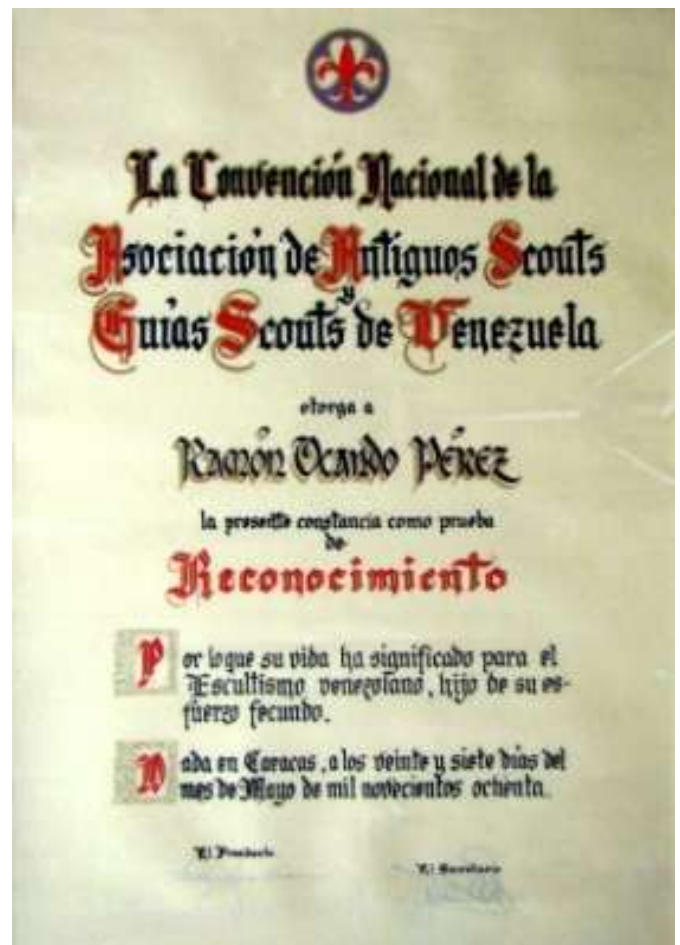 La Convención Nacional de la
Asociación de Antiguos Scouts
y
Guías Scouts de Venezuela
otorga a
Ramón Ocando Pérez
la presente constancia como prueba
de
Reconocimiento
Por lo que su vida ha significado para el
Escultismo venezolano, hijo de su es-
fuerzo fecundo.
Dada en Caracas, a los veinte y siete días del
mes de Mayo de mil novecientos ochenta.
El Presidente
El Secretario